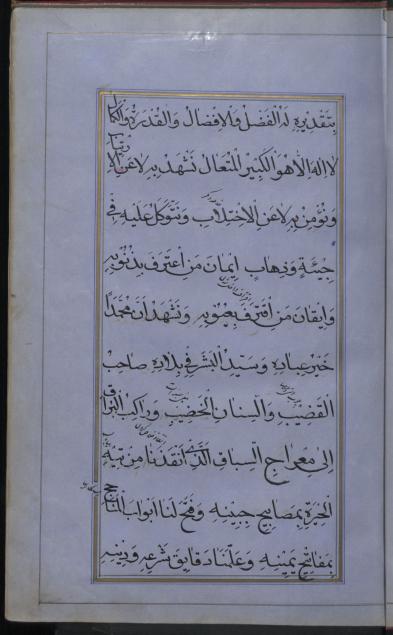 بِتَقْدِيرِهِ لَهُ الْفَضْلُ وَالْاِفْضَالُ وَالْقُدْرَةُ وَالْكَمَالُ
لَا اِلٰهَ اِلَّا هُوَ الْكَبِيرُ الْمُتَعَالُ نَشْهَدُ بِهِ لَا عَنِ الْاِرْتِيَابِ
وَنُؤْمِنُ بِهِ لَا عَنِ الْاِخْتِلَابِ وَنَتَوَكَّلُ عَلَيْهِ فِي
جِيْئَةٍ وَذِهَابٍ اِيمَانَ مَنِ اعْتَرَفَ بِذُنُوبِهِ
وَاِيقَانَ مَنِ اقْتَرَفَ بِعُيُوبِهِ وَنَشْهَدُ اَنَّ مُحَمَّدًا
خَيْرُ عِبَادِهِ وَسَيِّدُ الْبَشَرِ فِي بِلَادِهِ صَاحِبُ
الْقَضِيبِ وَالسِّنَانِ الْخَضِيبِ وَرَاكِبُ الْبُرَاقِ
اِلَى مِعْرَاجِ السِّبَاقِ الَّذِي اَنْقَذَنَا مِنْ تِيهِ
الْحَيْرَةِ بِمَصَابِيحِ جَبِينِهِ وَفَتَحَ لَنَا اَبْوَابَ الْمَنَاجِحِ
بِمَفَاتِيحِ يَمِينِهِ وَعَلَّمَنَا دَقَايِقَ شَرْعِهِ وَدِينِهِ